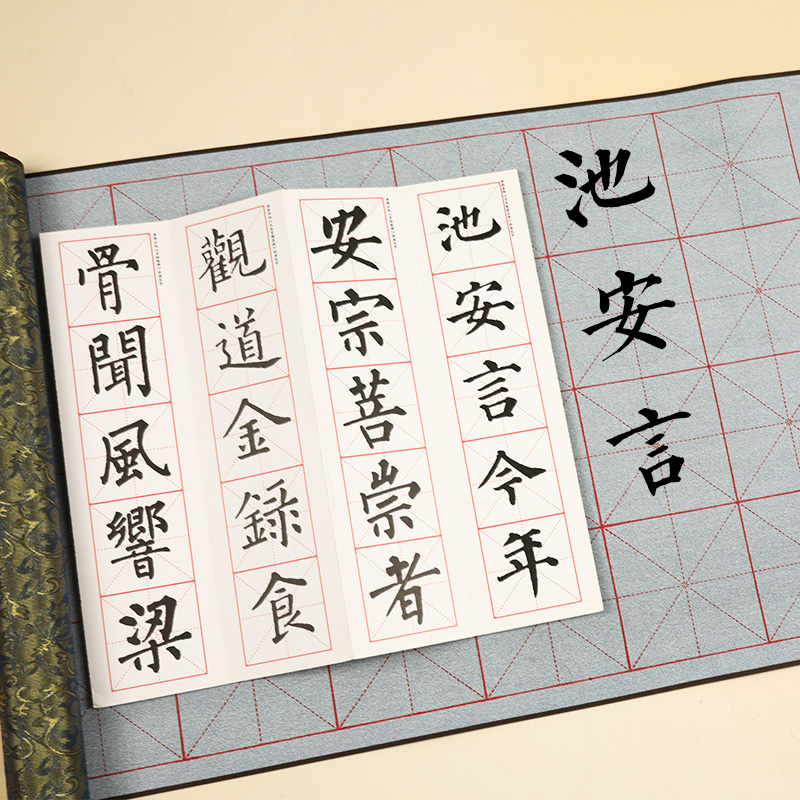 池安言
池安言今年
安宗菩崇者
觀道金録食
骨聞風響梁